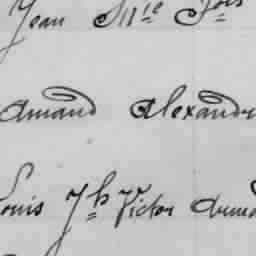 Jean
Amand Alexandre
Louis Jh Victor Armand